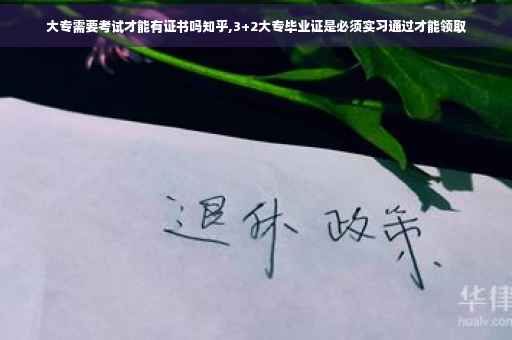 大专需要考试才能有证书吗知乎,3+2大专毕业证是必须实习通过才能领取
退休 政策
华律
hualv.com